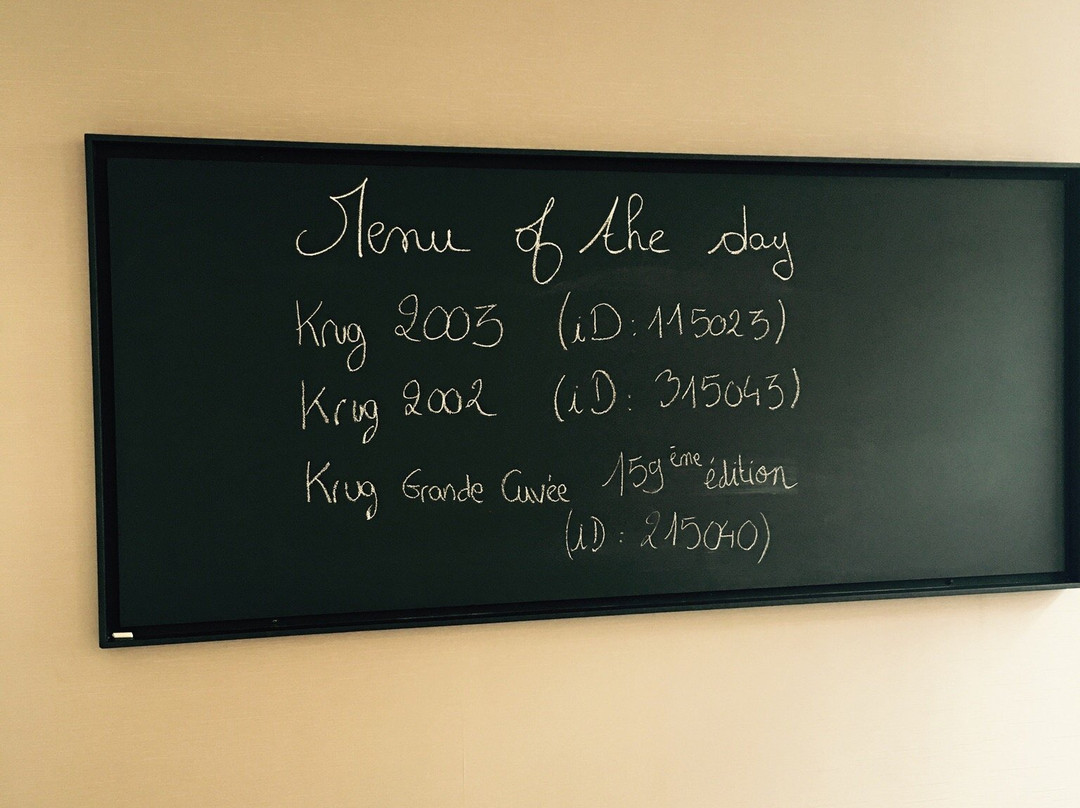 Menu of the day
Krug 2003 (iD: 115023)
Krug 2002 (iD: 315043)
Krug Grande Cuvée 159ème édition
(iD: 215040)